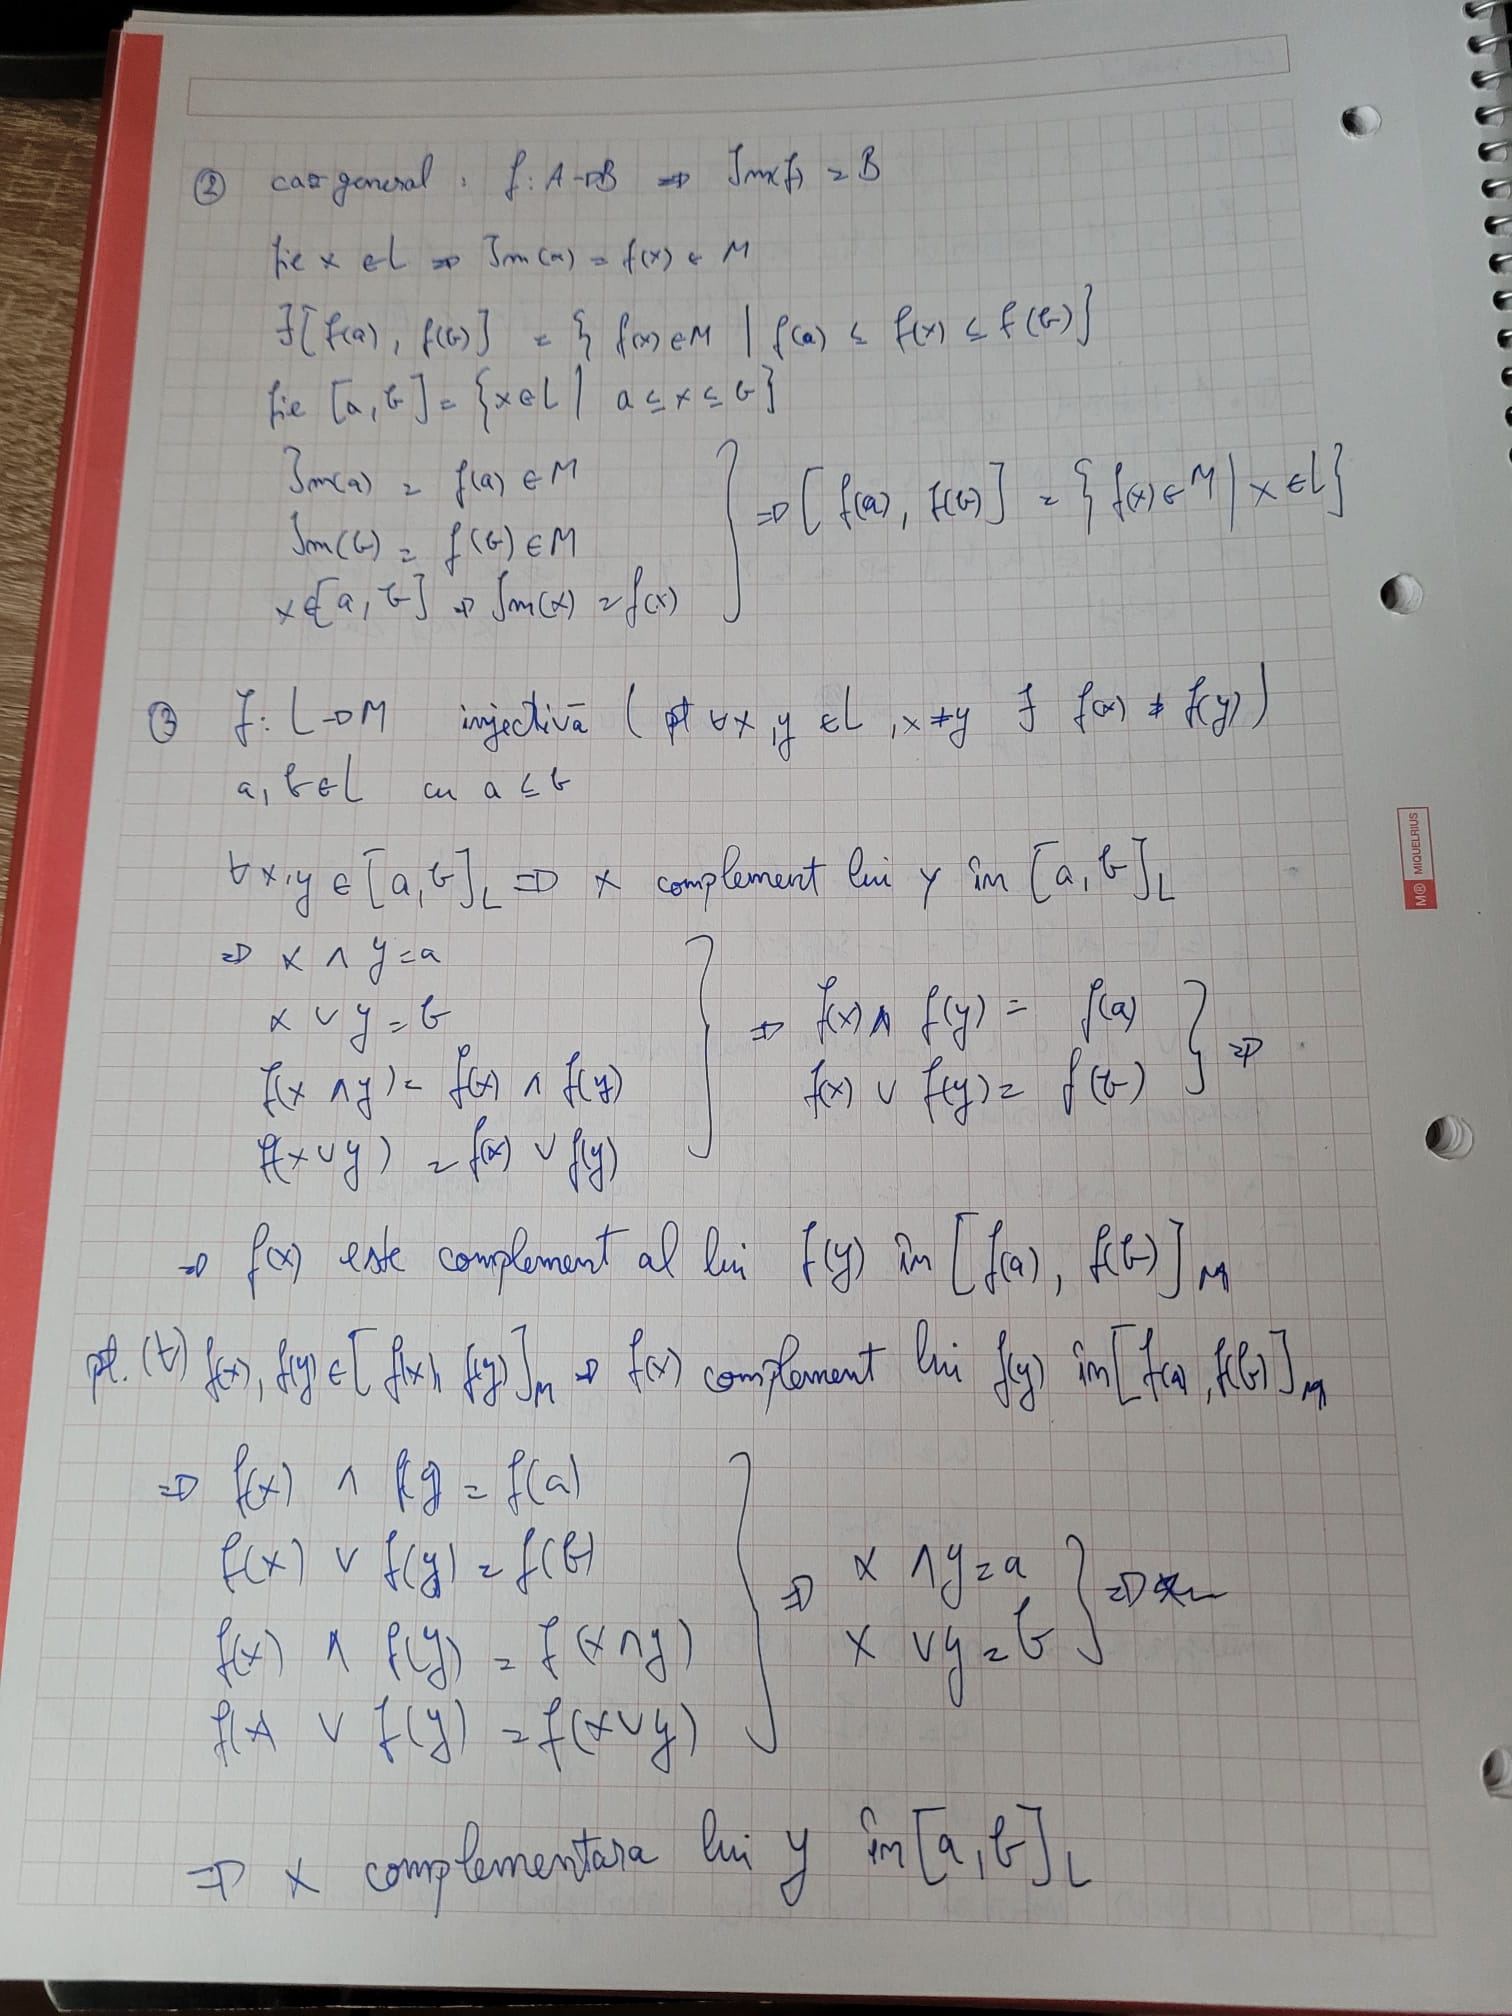 ② caz general : f: A→B ⇒ Im(f) = B
fie x ∈ L ⇒ Im(x) = f(x) ∈ M
∃ [f(a), f(b)] = { f(x) ∈ M | f(a) ≤ f(x) ≤ f(b)}
fie [a, b] = {x ∈ L | a ≤ x ≤ b}
Im(a) = f(a) ∈ M
Im(b) = f(b) ∈ M
x ∈ [a, b] ⇒ Im(x) = f(x)
} ⇒ [f(a), f(b)] = { f(x) ∈ M | x ∈ L}
③ f: L→M injectivă ( pt ∀x,y ∈ L, x ≠ y ∃ f(x) ≠ f(y) )
a, b ∈ L cu a ≤ b
∀ x,y ∈ [a, b]L ⇒ x complement lui y în [a, b]L
⇒ x ∧ y = a
x ∨ y = b
f(x ∧ y) = f(x) ∧ f(y)
f(x ∨ y) = f(x) ∨ f(y)
} ⇒ f(x) ∧ f(y) = f(a)
f(x) ∨ f(y) = f(b) } ⇒
⇒ f(x) este complement al lui f(y) în [f(a), f(b)]M
pt. (∀) f(x), f(y) ∈ [f(x), f(y)]M ⇒ f(x) complement lui f(y) în [f(a), f(b)]M
⇒ f(x) ∧ f(y = f(a)
f(x) ∨ f(y) = f(b)
f(x) ∧ f(y) = f(x ∧ y)
f(x ∨ f(y) = f(x ∨ y)
} ⇒ x ∧ y = a
x ∨ y = b } ⇒
⇒ x complementara lui y în [a, b]L
M® MIQUELRIUS